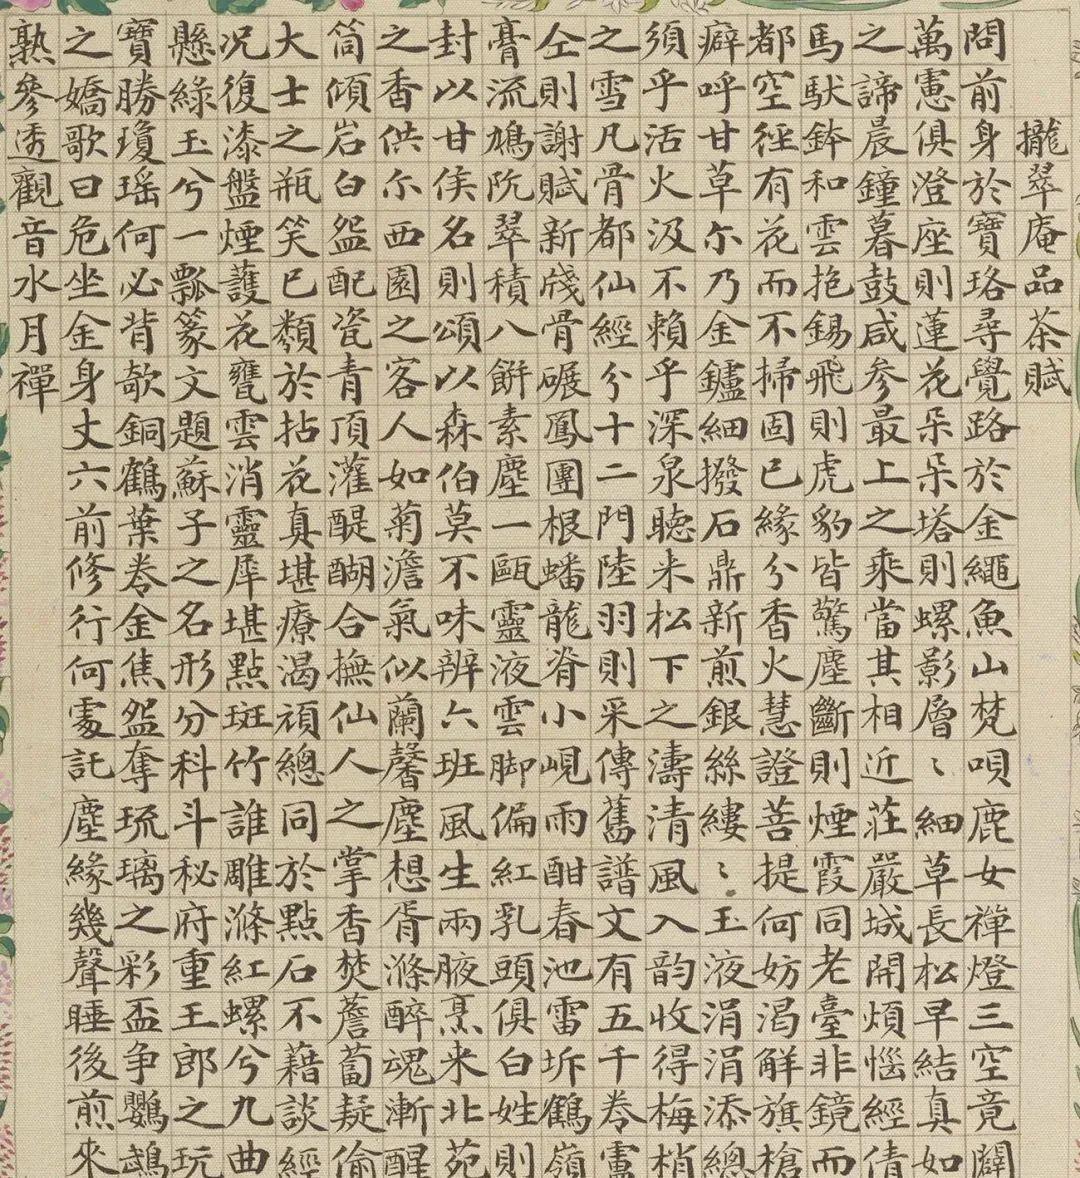 攏翠庵品茶賦
問前身於寶珞尋覺路於金繩魚山梵唄鹿女禪燈三空竟闢
萬憲俱澄座則蓮花朵朵塔則螺影層〻細草長松早結真如
之諦晨鐘暮鼓咸參最上之乘當其相近莊嚴城開煩惱經倩
馬馱鉢和雲抱錫飛則虎豹皆驚塵斷則煙霞同老臺非鏡而
都空徑有花而不掃固已緣分香火慧證菩提何妨渴解旗槍
癖呼甘草尒乃金鑪細撥石鼎新煎銀絲縷〻玉液涓涓添總
須乎活火汲不賴乎深泉聽来松下之濤清風入韵收得梅梢
之雪凡骨都仙經分十二門陸羽則采傳舊譜文有五千卷盧
仝則謝賦新牋骨碾鳳團根蟠龍脊小峴雨酣春池雷坼鶴嶺
膏流鳩阬翠積八餅素塵一甌靈液雲脚偏紅乳頭俱白姓則
封以甘侯名則頌以森伯莫不味辨六班風生兩腋烹来北苑
之香供尒西園之客人如菊澹氣似蘭馨塵想胥滌醉魂漸醒
筒傾岩白盌配瓷青頂灌醍醐合撫仙人之掌香焚薝蔔疑偷
大士之瓶笑已類於拈花真堪療渴頑總同於點石不藉談經
况復漆盤煙護花甕雲消靈犀堪點斑竹誰雕滌紅螺兮九曲
懸綠玉兮一瓢篆文題蘇子之名形分科斗秘府重王郎之玩
寶勝瓊瑤何必背欹銅鶴葉卷金焦盌奪琉璃之彩盃争鸚鵡
之嬌歌曰危坐金身丈六前修行何處託塵緣幾聲睡後煎來
熟參透觀音水月禪